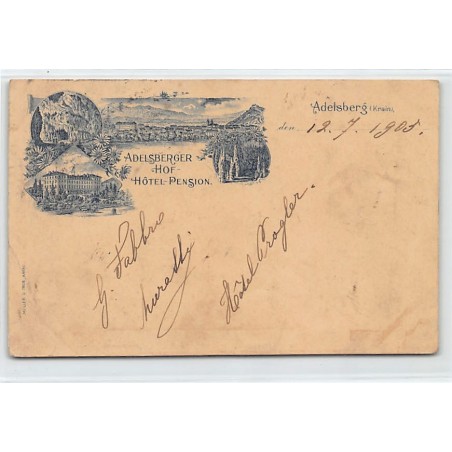 Adelsberg (Krain),
den 12. 7. 1905.
ADELSBERGER
HOF
HÔTEL-PENSION.
G. Fabbro
Hôtel Progler.